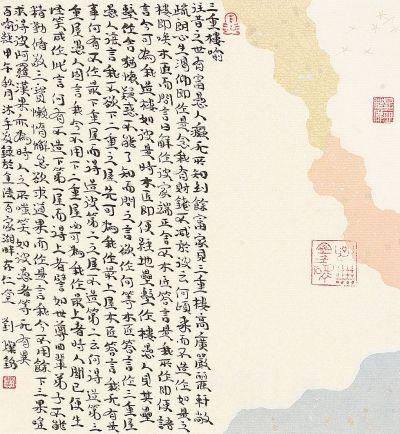 三重樓喻
往昔之世有富愚人癡無所知到餘富家見三重樓高廣嚴麗軒敞
疏朗心生渴仰即作是念我有財錢不減於彼云何頃來而不造作如是之
樓即喚木匠而問言曰解作彼家端正舍不木匠答言是我所作即便語
言今可為我造樓如彼是時木匠即便經地壘墼作樓愚人見其壘
墼作舍猶懷疑惑不能了知而問之言欲作何等木匠答言作三重屋
愚人復言我不欲下二重之屋先可為我作最上屋木匠答言無有是
事何有不作最下重屋而得造彼第二之屋不造第二云何得造第三
重屋愚人固言我今不用下二重屋必可為我作最上者時人聞已便生
怪笑咸作此言何有不造下第一屋而得上者譬如世尊四輩弟子不能
精勤修敬三寶懶惰懈怠欲求道果而作是言我今不用餘下三果唯
求得彼阿羅漢果亦為時人之所嗤笑如彼愚者等無有異
百喻經甲午秋月於金陵百家湖畔存仁堂劉燦銘